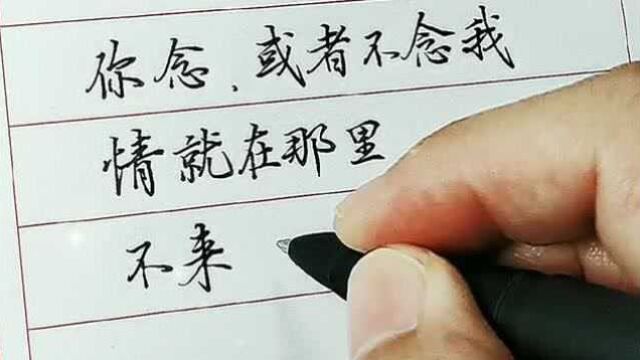 你念、或者不念我
情就在那里
不来